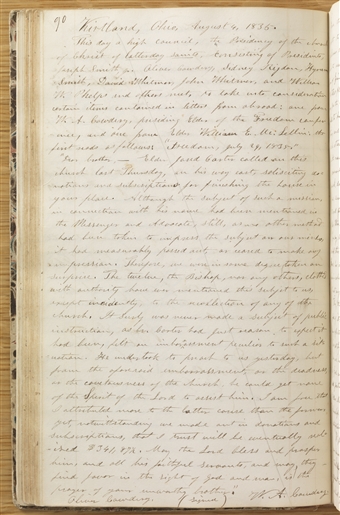 90 Kirtland, Ohio, August 4, 1835.
This day a high council, of the Presidency of the church
of Christ of Latterday saints, consisting of Presidents
Joseph Smith jr. Oliver Cowdery, Sidney Rigdon, Hyrum
Smith, David Whitmer, John Whitmer, and William
W. Phelps and others met, to take into consideration
certain items contained in letters from abroad: one from
W. A. Cowdery, presiding Elder of the Freedom confer-
ence, and one from Elder William E. McLellin. The
first reads as follows: "Freedom, July 29, 1835.
"Dear brother, — Elder Jared Carter called on this
church last Thursday, on his way east, soliciting do-
nations and subscriptions for finishing the house in
your place. Although the subject of such a mission
in connection with his name had been mentioned in
the Messenger and Advocate, still, as no other method
had been taken to impress the subject on our minds
it had measurably passed out or ceased to make any
impression. Therefore we were in some degree taken on
surprise. The twelve, the Bishop, nor any others, clothed
with authority have ever mentioned this subject to us
except incidently, to the recollection of any of the
church. It surely was never made a subject of public
instruction, as br. Carter had just reason to expect it
had been, felt an embarrassment peculiar to such a sit-
uation. He undertook to preach to us yesterday, but
from the aforesaid embarrassment, or the deadness
or the covetousness of the church he could get none
of the Spirit of the Lord to assist him. I am free that
I attributed more to the latter cause than the former
yet, notwithstanding we made out in donations and
subscriptions, that I trust will be eventually real-
ized
May the Lord bless and prosper
him, and all his faithful servants, and may they
find favor in the sight of God and man, is the
prayer of your unworthy brother.
Oliver Cowdery. (signed) W. A. Cowdery